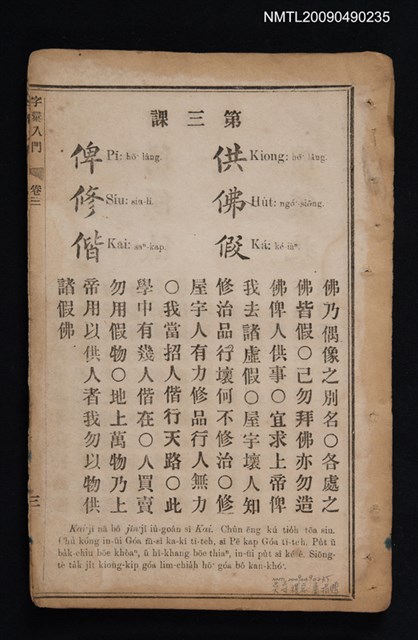 NMTL20090490235
字彙入門
卷三
三
第三課
供 Kiong: hō͘ lâng.
佛 Hu̍t: ngó͘-siōng.
假 Ká: ké-iāⁿ.
俾 Pí: hō͘ lâng.
修 Siu: siu-lí.
偕 Kai: saⁿ-kap.
佛乃偶像之別名○各處之
佛皆假○己勿拜佛亦勿造
佛俾人供事○宜求上帝俾
我去諸虛假○屋宇壞人知
修治品行壞何不修治○修
屋宇人有力修品行人無力
○我當招人偕行天路○此
學中有幾人偕在○人買賣
勿用假物○地上萬物乃上
帝用以供人者我勿以物供
諸假佛
Kai-jī nā bô jîn-jī iû-goân sī Kai. Chūn ēng kú tio̍h tōa siu.
Chú kóng in-ūi Góa m̄-sī ka-kī tī-teh, sī Pē kap Góa tī-teh. Pu̍t ū
ba̍k-chiu bōe khòaⁿ, ū hī-khang bōe thiaⁿ, in-ūi pu̍t sī ké-ê. Siōng-
tè ta̍k ji̍t kiong-kip góa lim-chia̍h hō͘ góa bô kan-khó͘.